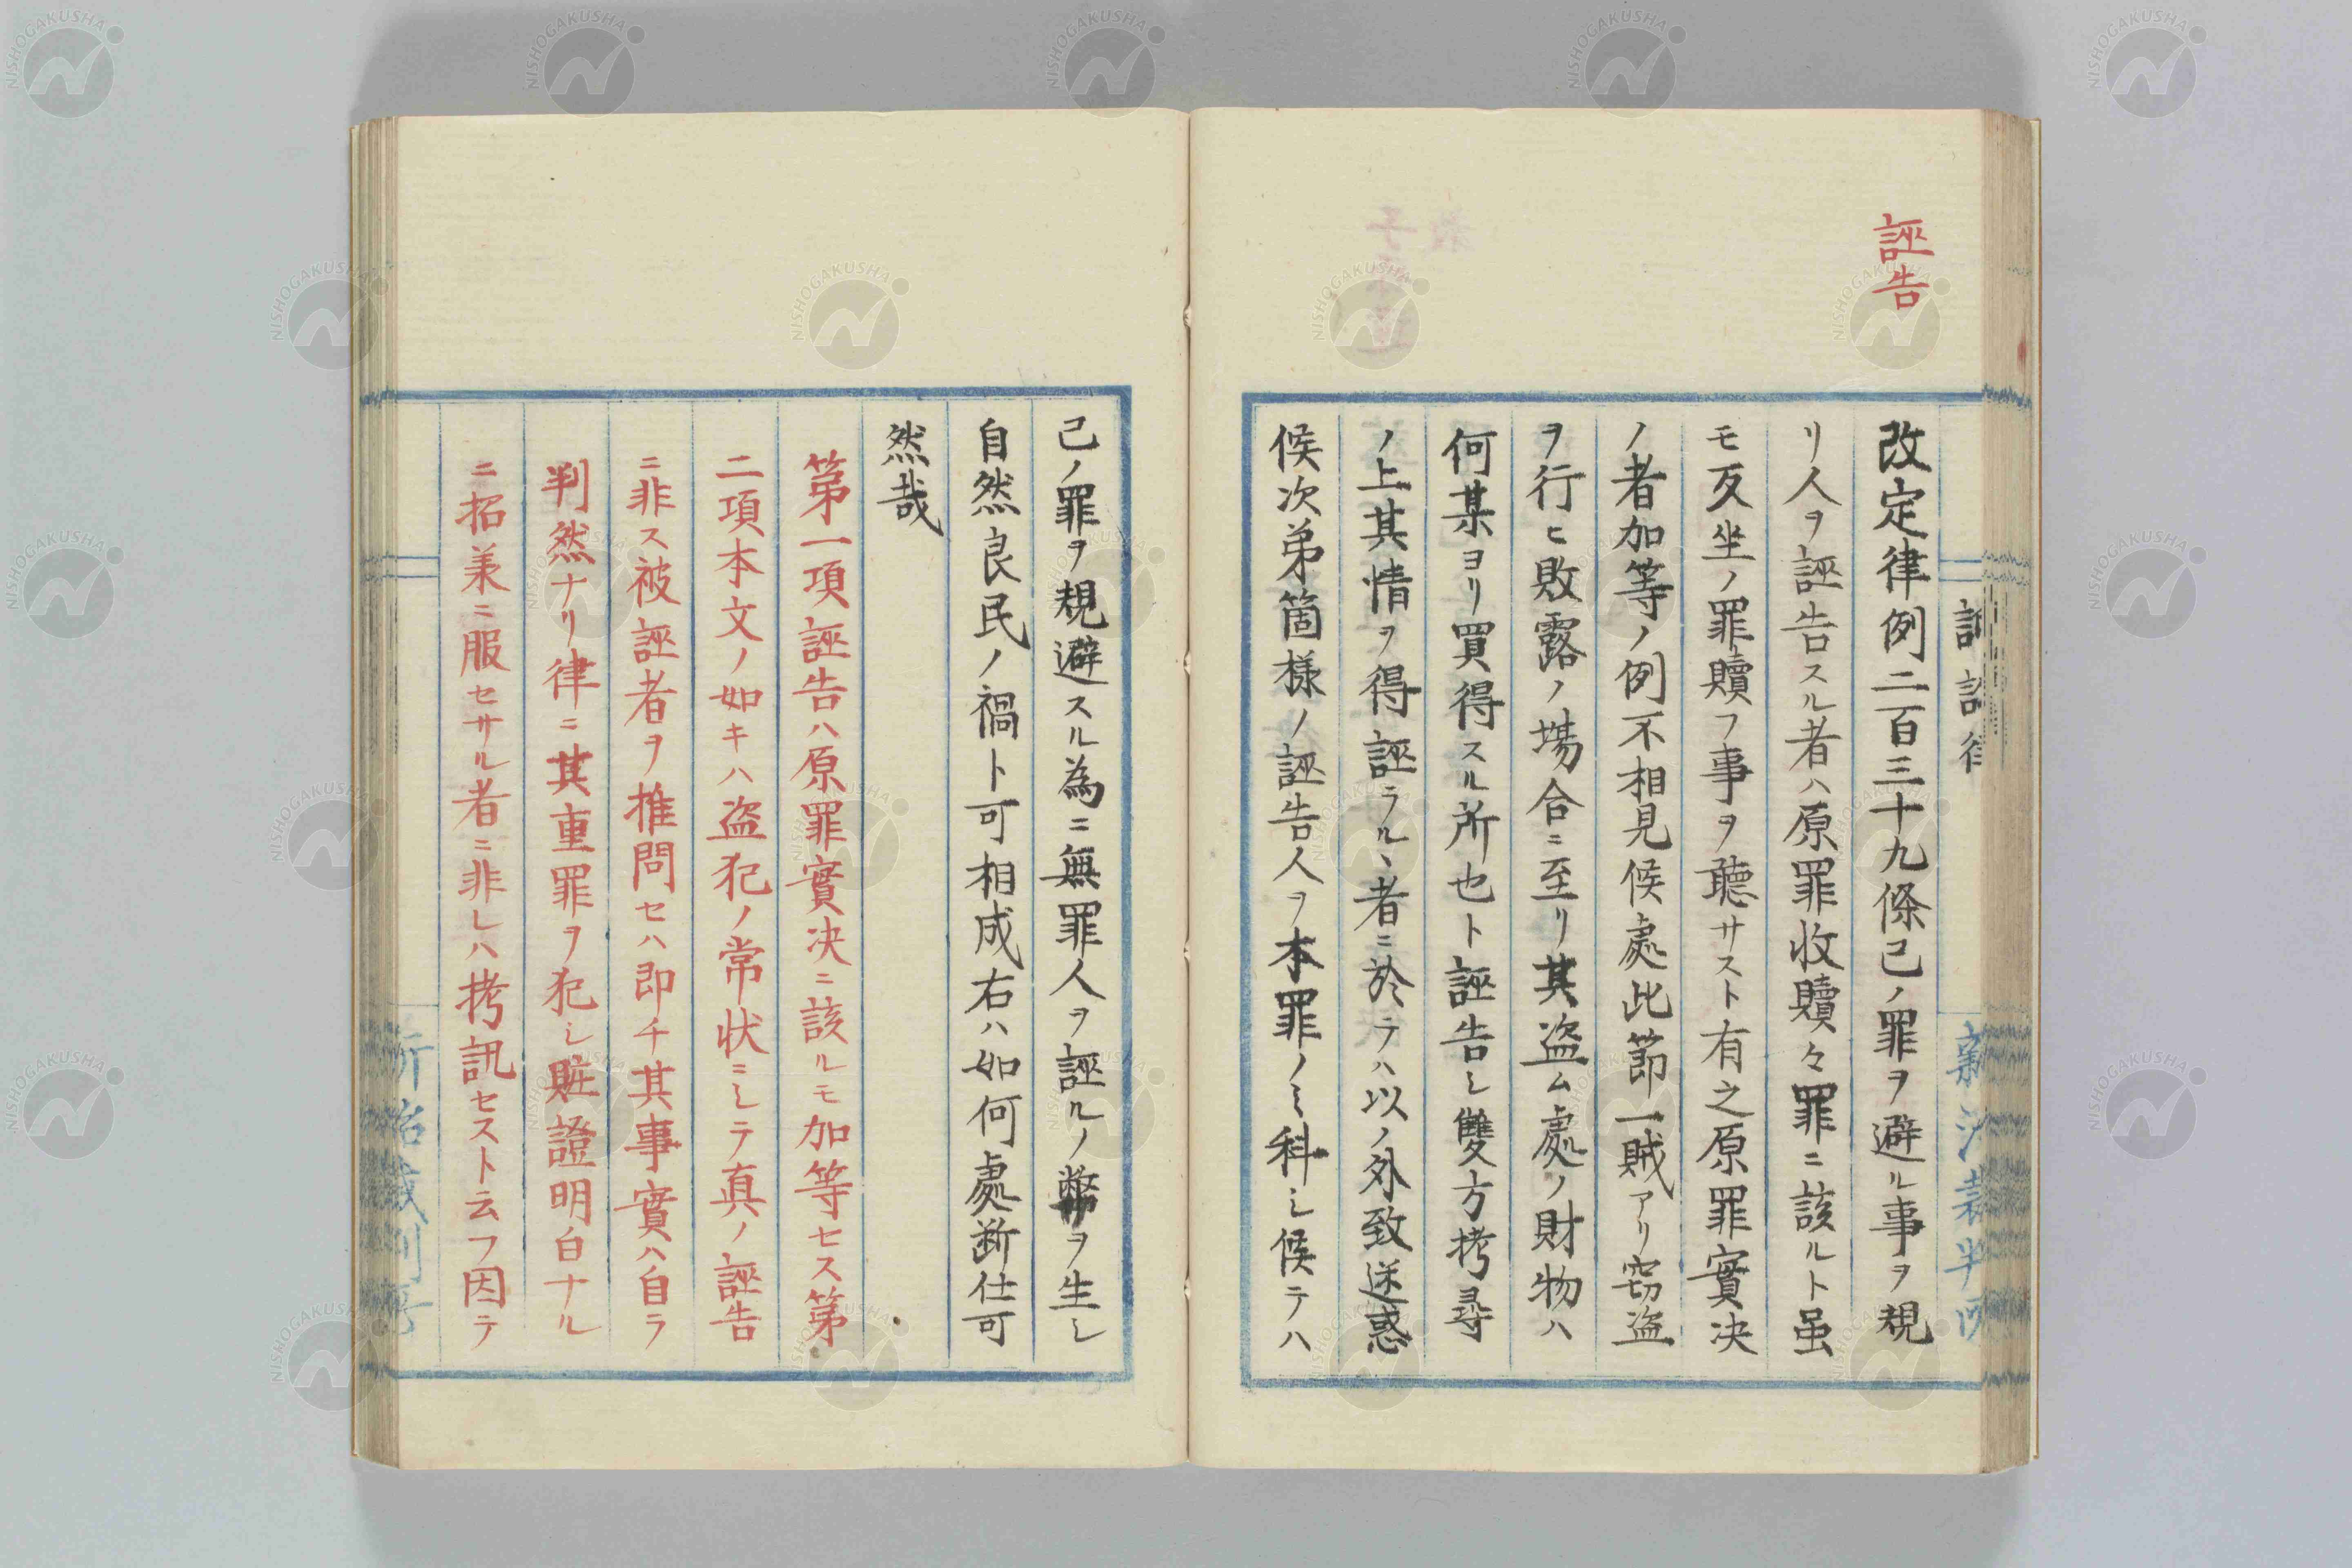 誣告
改定律例二百三十九條己ノ罪ヲ避ル事ヲ規
リ人ヲ誣告スル者ハ原罪收贖々罪ニ該ルト虽
モ反坐ノ罪贖フ事ヲ聽サスト有之原罪實决
ノ者加等ノ例不相見候處此節一賊アリ窃盗
ヲ行ヒ敗露ノ場合ニ至リ其盗ム處ノ財物ハ
何某ヨリ買得スル所也ト誣告シ雙方拷尋
ノ上其情ヲ得誣ラルヽ者ニ於テハ以ノ外致迷惑
候次第箇様ノ誣告人ヲ本罪ノミ科シ候テハ
己ノ罪ヲ規避スル為ニ無罪人ヲ誣ルノ弊ヲ生シ
自然良民ノ禍ト可相成右ハ如何處断仕可
然哉
第一項誣告ハ原罪實决ニ該ルモ加等セス第
二項本文ノ如キハ盗犯ノ常状ニシテ真ノ誣告
ニ非ス被誣者ヲ推問セハ即チ其事實ハ自ラ
判然ナリ律ニ其重罪ヲ犯シ賍證明白ナル
ニ招承ニ服セサル者ニ非レハ拷訊セスト云フ因テ